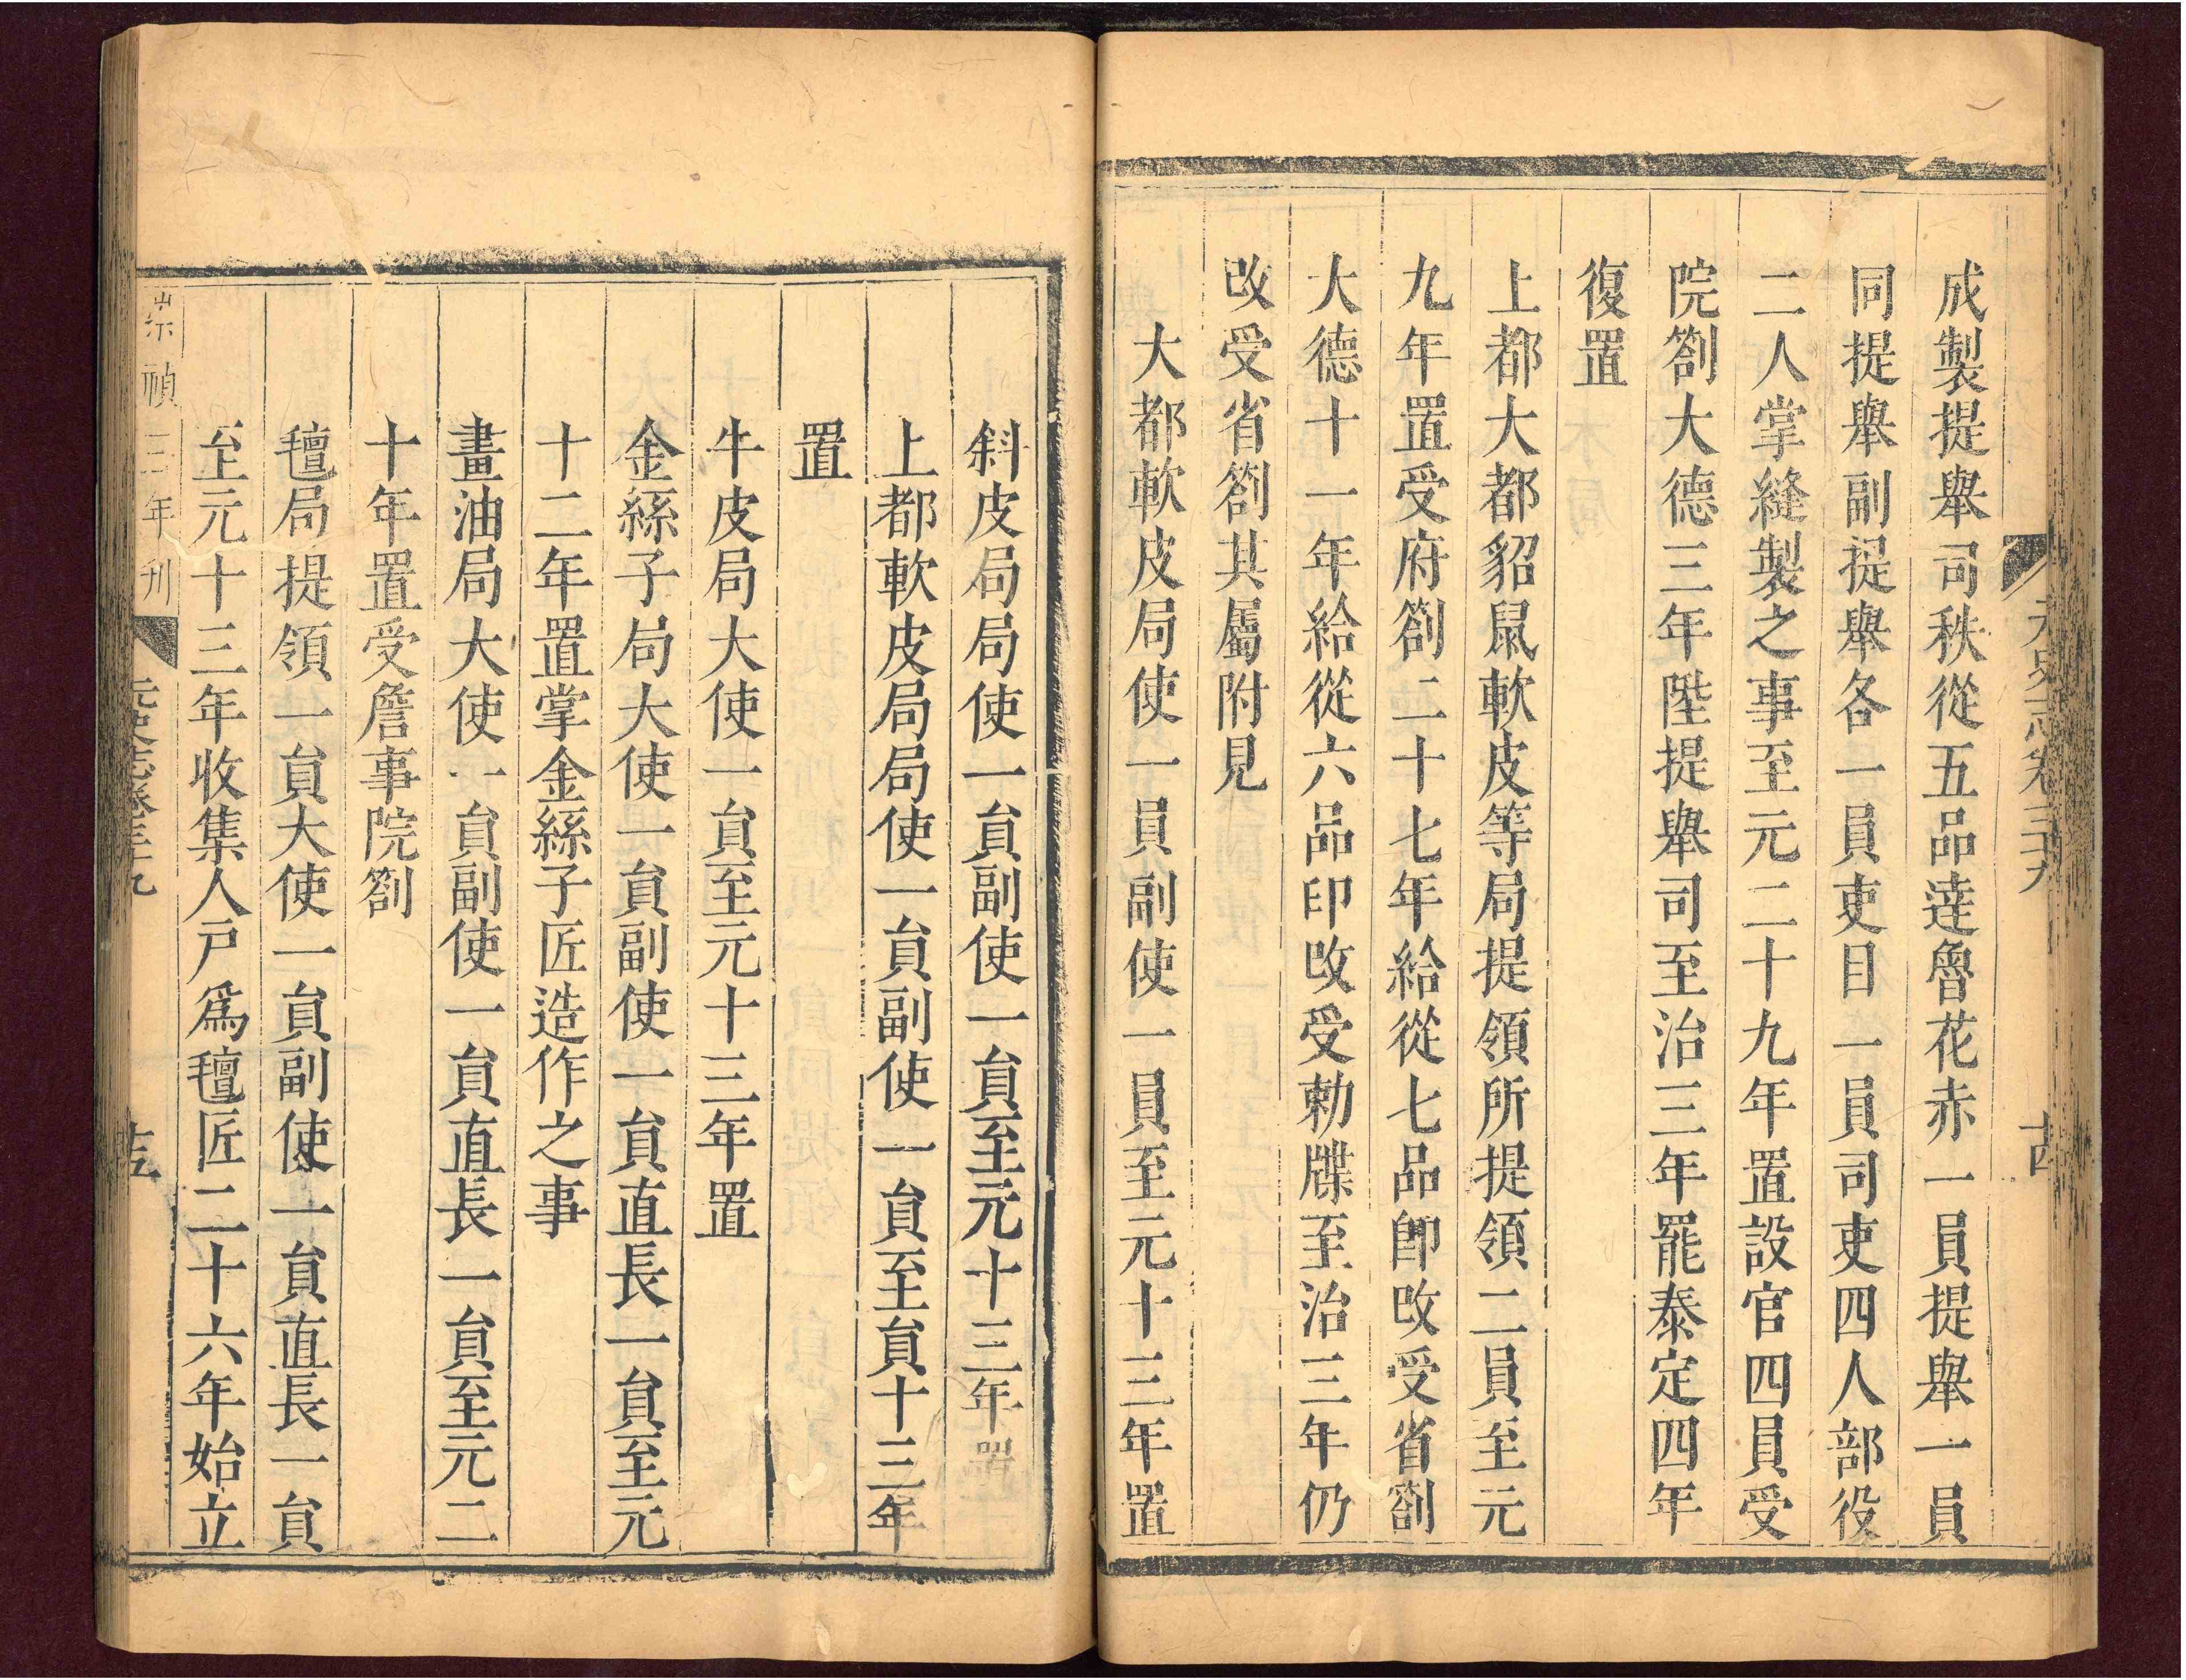 元史志卷三十九
十四
成製提舉司秩從五品達魯花赤一員提舉一員
同提舉副提舉各一員吏目一員司吏四人部役
二人掌縫製之事至元二十九年置設官四員受
院劄大德三年陞提舉司至治三年罷泰定四年
復置
上都大都貂鼠軟皮等局提領所提領二員至元
九年置受府劄二十七年給從七品印改受省劄
大德十一年給從六品印改受勅牒至治三年仍
改受省劄其屬附見
大都軟皮局使一員副使一員至元十三年置
斜皮局局使一員副使一員至元十三年置
上都軟皮局局使一員副使一員至員十三年
置
牛皮局大使一員至元十三年置
金絲子局大使一員副使一員直長一員至元
十二年置掌金絲子匠造作之事
畫油局大使一員副使一員直長一員至元二
十年置受詹事院劄
氊局提領一員大使一員副使一員直長一員
至元十三年收集人戶爲氊匠二十六年始立
崇禎三年刊
元史志卷三十九
十五